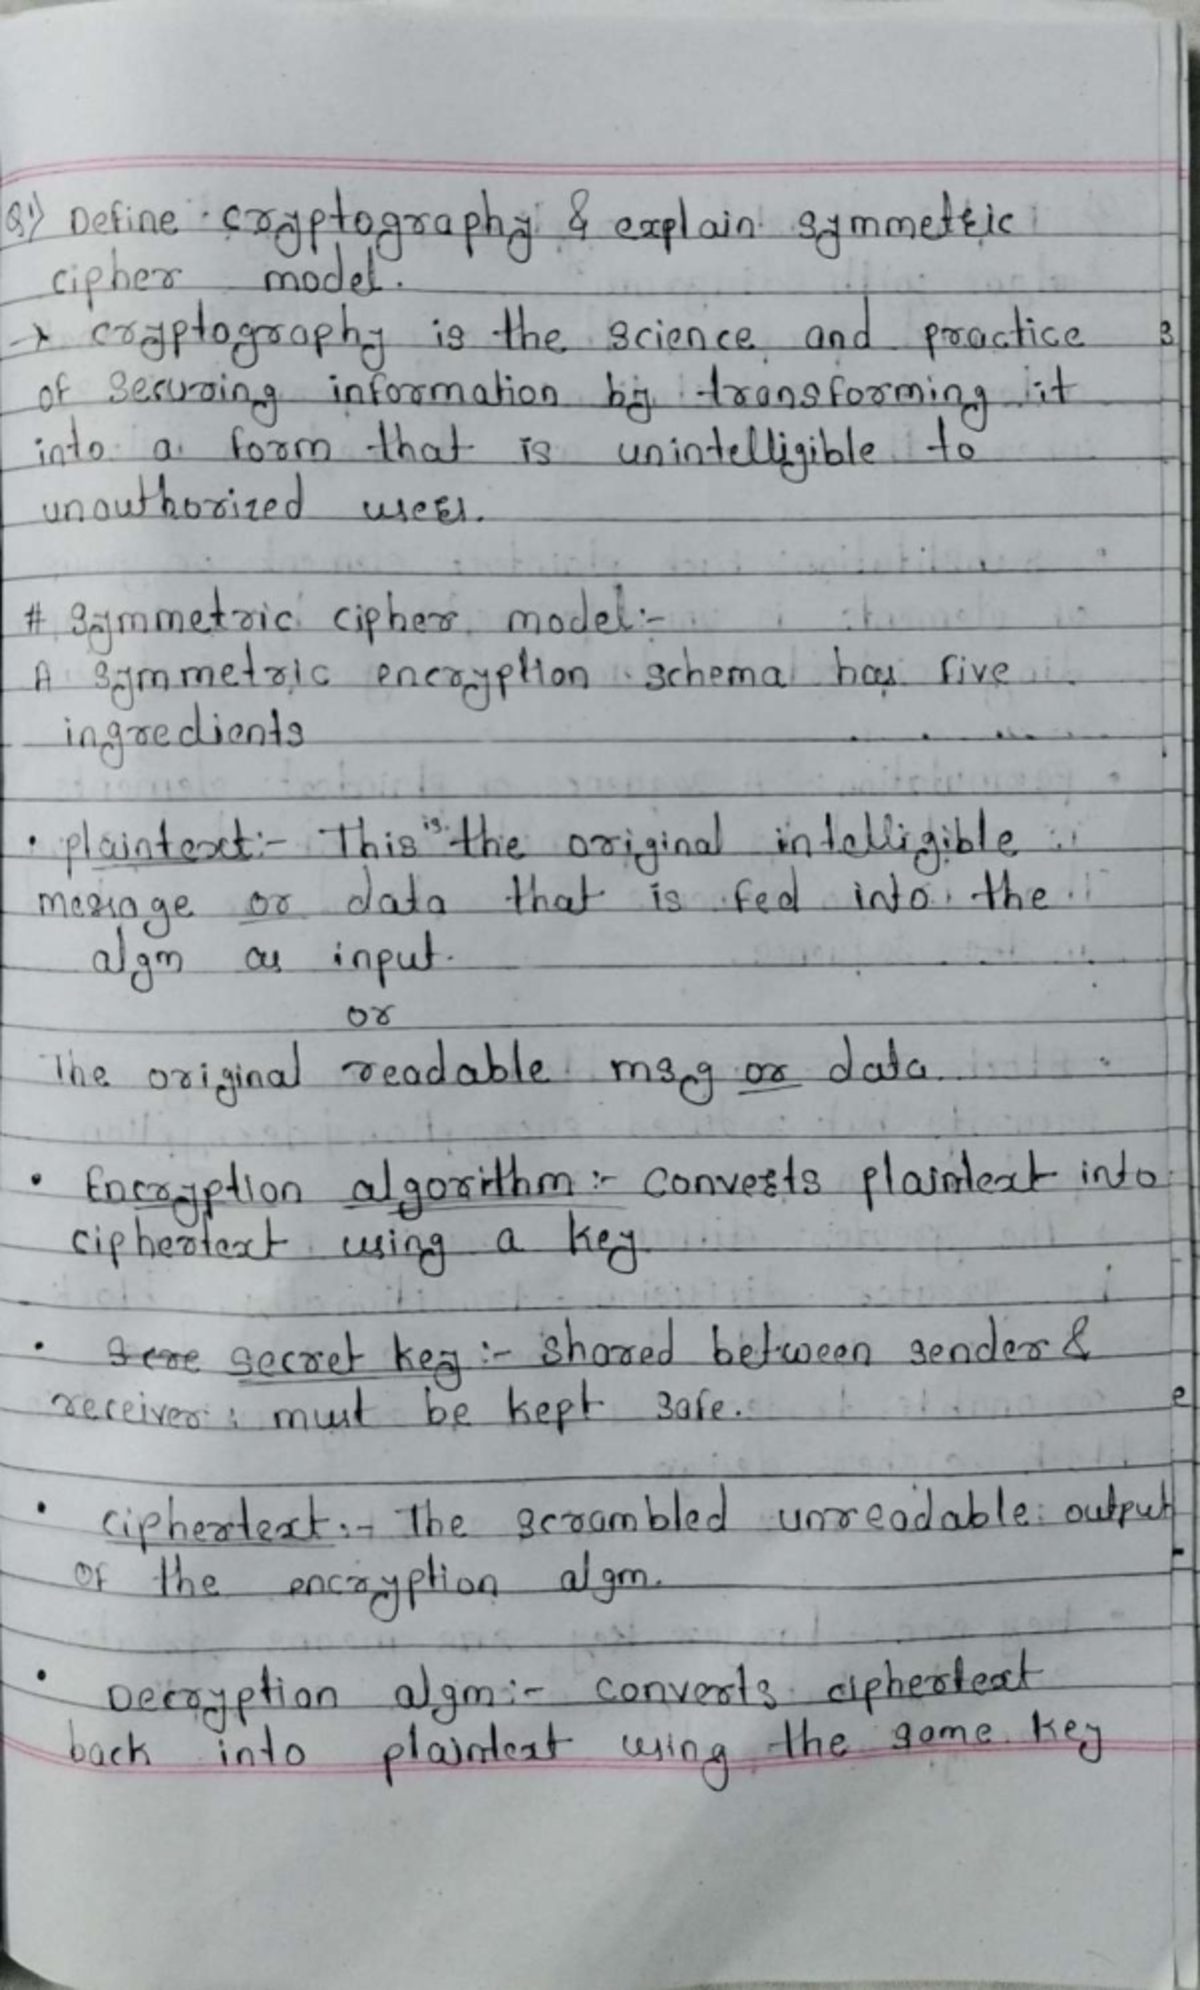 Q1) Define cryptography & explain symmetric
cipher model.
→ cryptography is the science and practice
of securing information by transforming it
into a form that is unintelligible to
unauthorized users.
# Symmetric cipher model:-
A symmetric encryption schema has five
ingredients
• plaintext:- This is the original intelligible
message or data that is fed into the
algm as input.
or
The original readable msg or data
• Encryption algorithm:- converts plaintext into
ciphertext using a key
• secret key:- shared between sender &
receiver: must be kept safe.
• ciphertext:- The scrambled unreadable output
of the encryption algm.
• Decryption algm:- converts ciphertext
back into plaintext using the same key